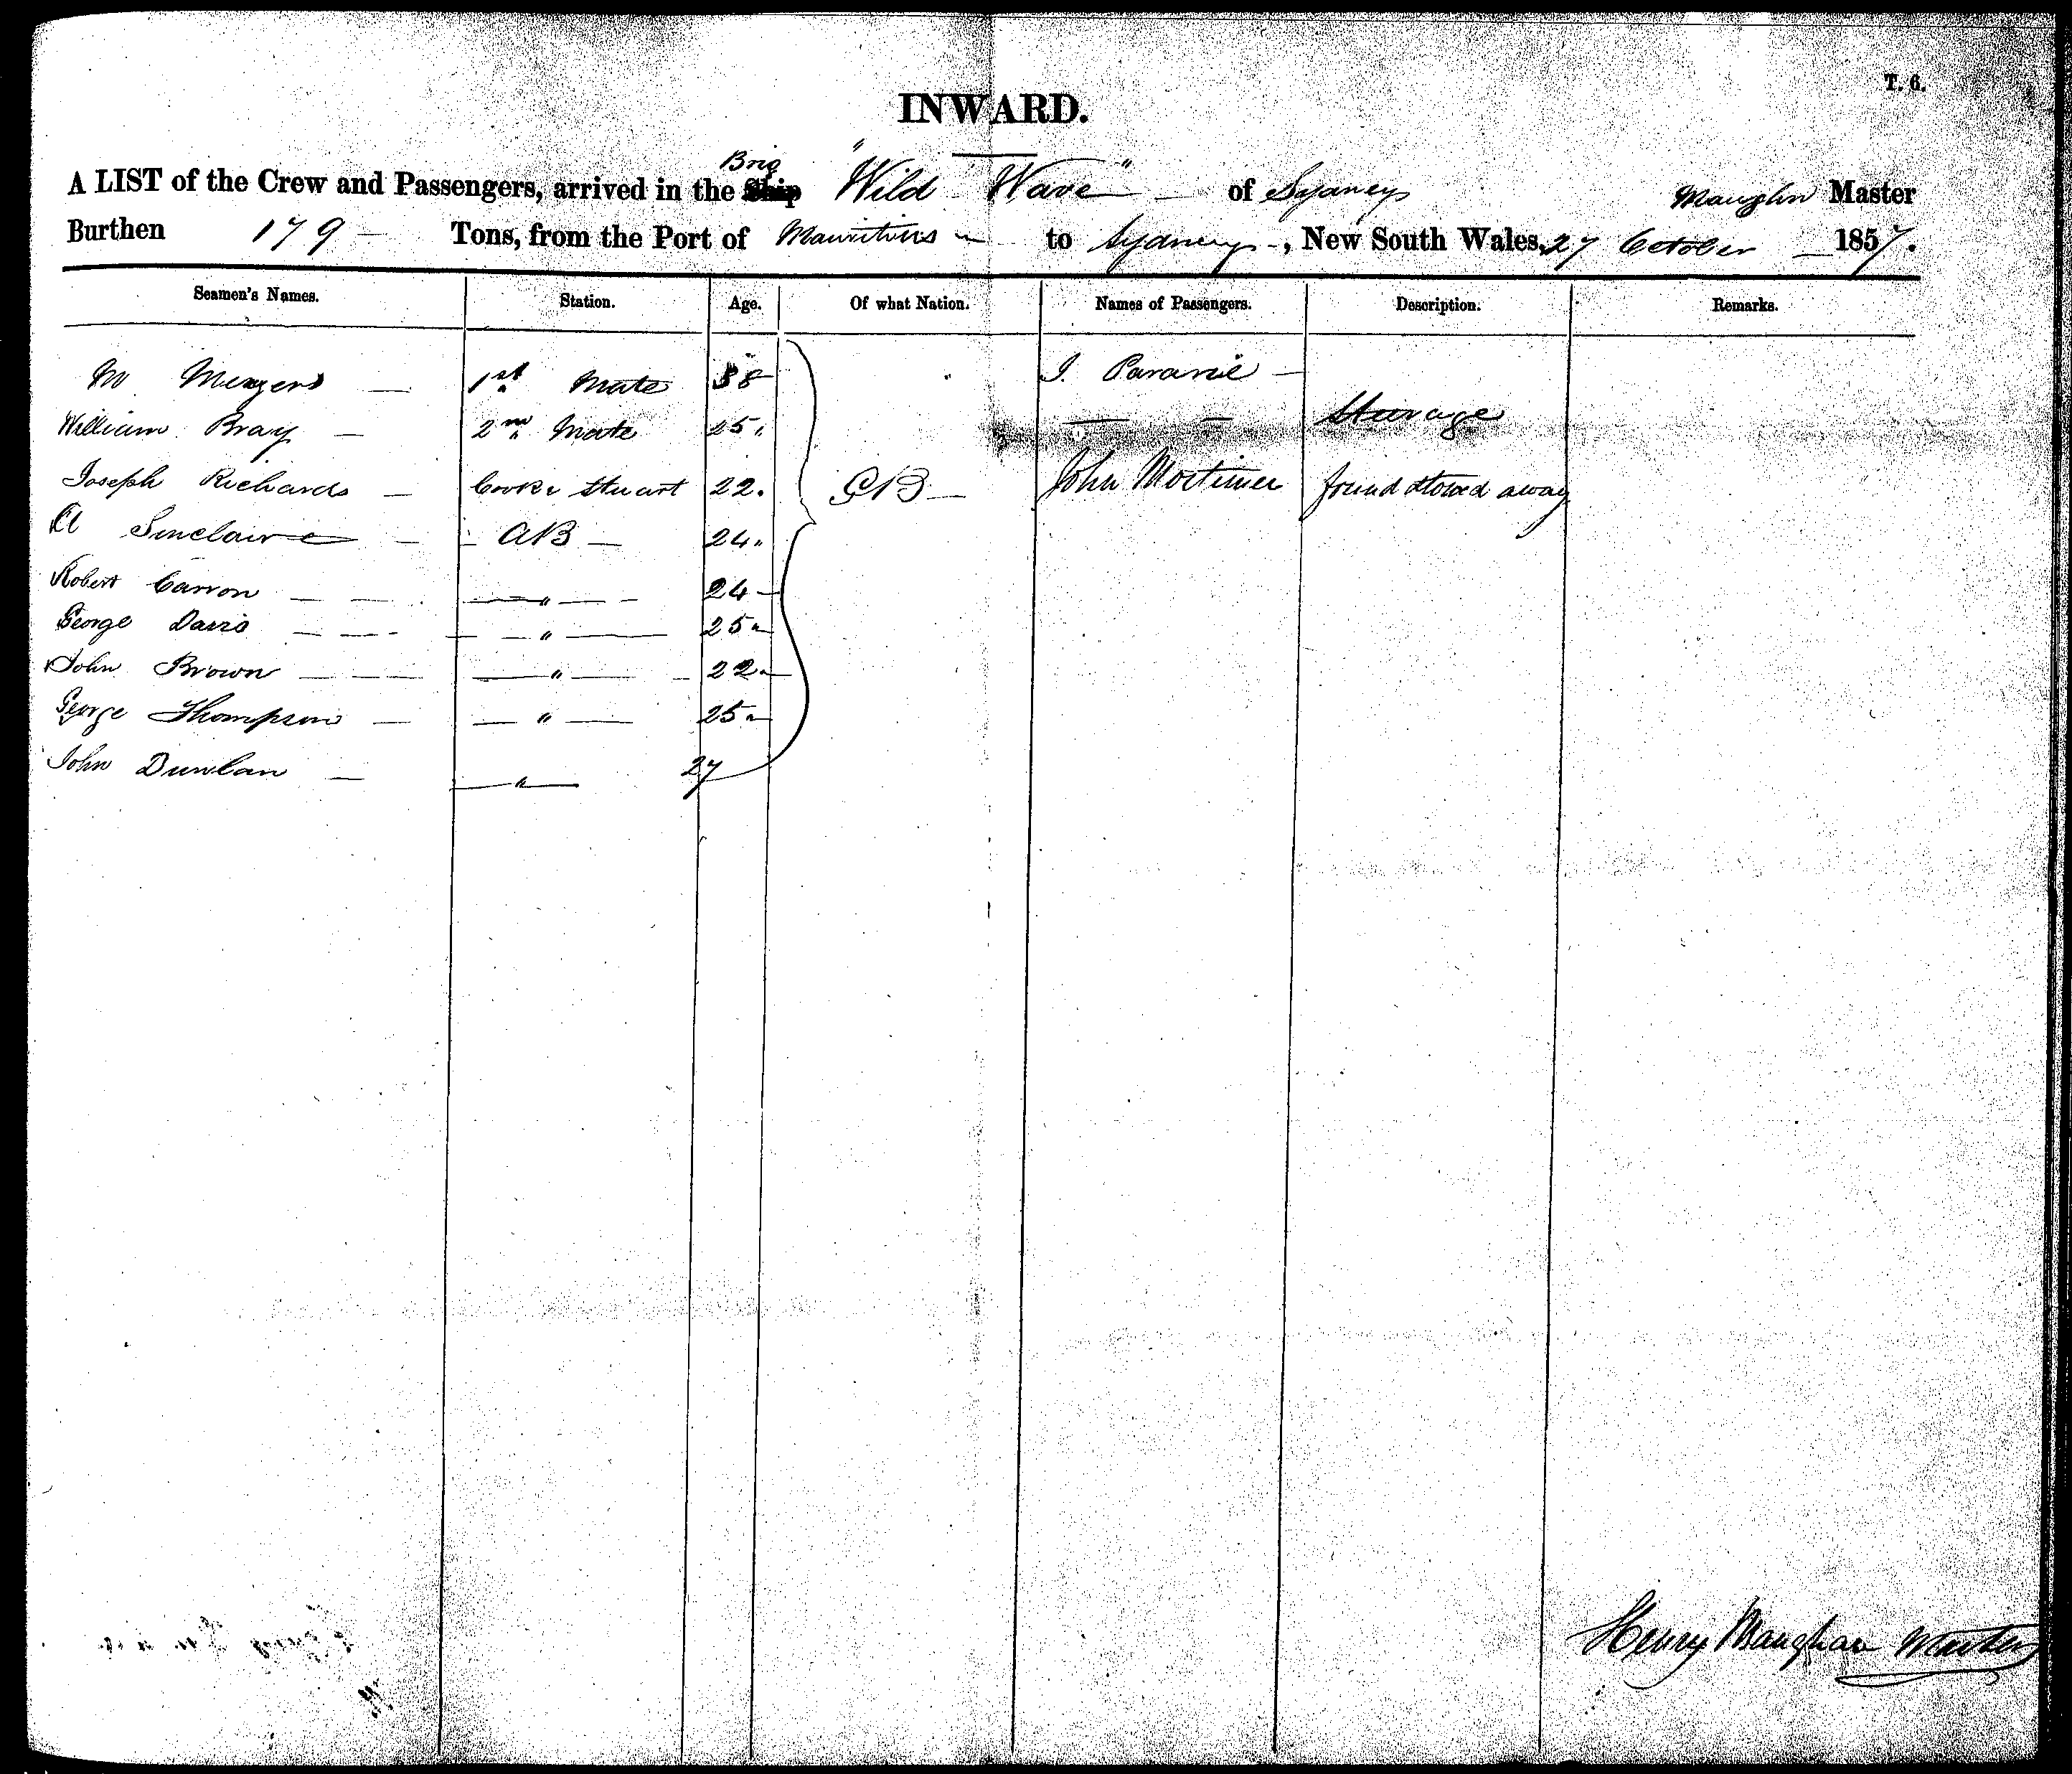 T. 6.
INWARD.
A LIST of the Crew and Passengers, arrived in the Ship Brig "Wild Wave" of Sydney Maughn Master
Burthen 179 Tons, from the Port of Mauritius to Sydney, New South Wales, 27 October 1857.
Seamen's Names. Station. Age. Of what Nation. Names of Passengers. Description. Remarks.
M Meyers — 1st Mate 38 I.
William Bray — 2nd Mate 25 — — Sturage
Joseph Richards — Cook & Stuart 22. GB — John Mortimer found stowed away
A Sinclaire — AB — 24
Robert Carron — — — " — 24 —
George Davis — — — " — 25
John Brown — — — " — 22
George Thompson — — " — 25
John Dunlan — — " — 27
Henry Maughan Master